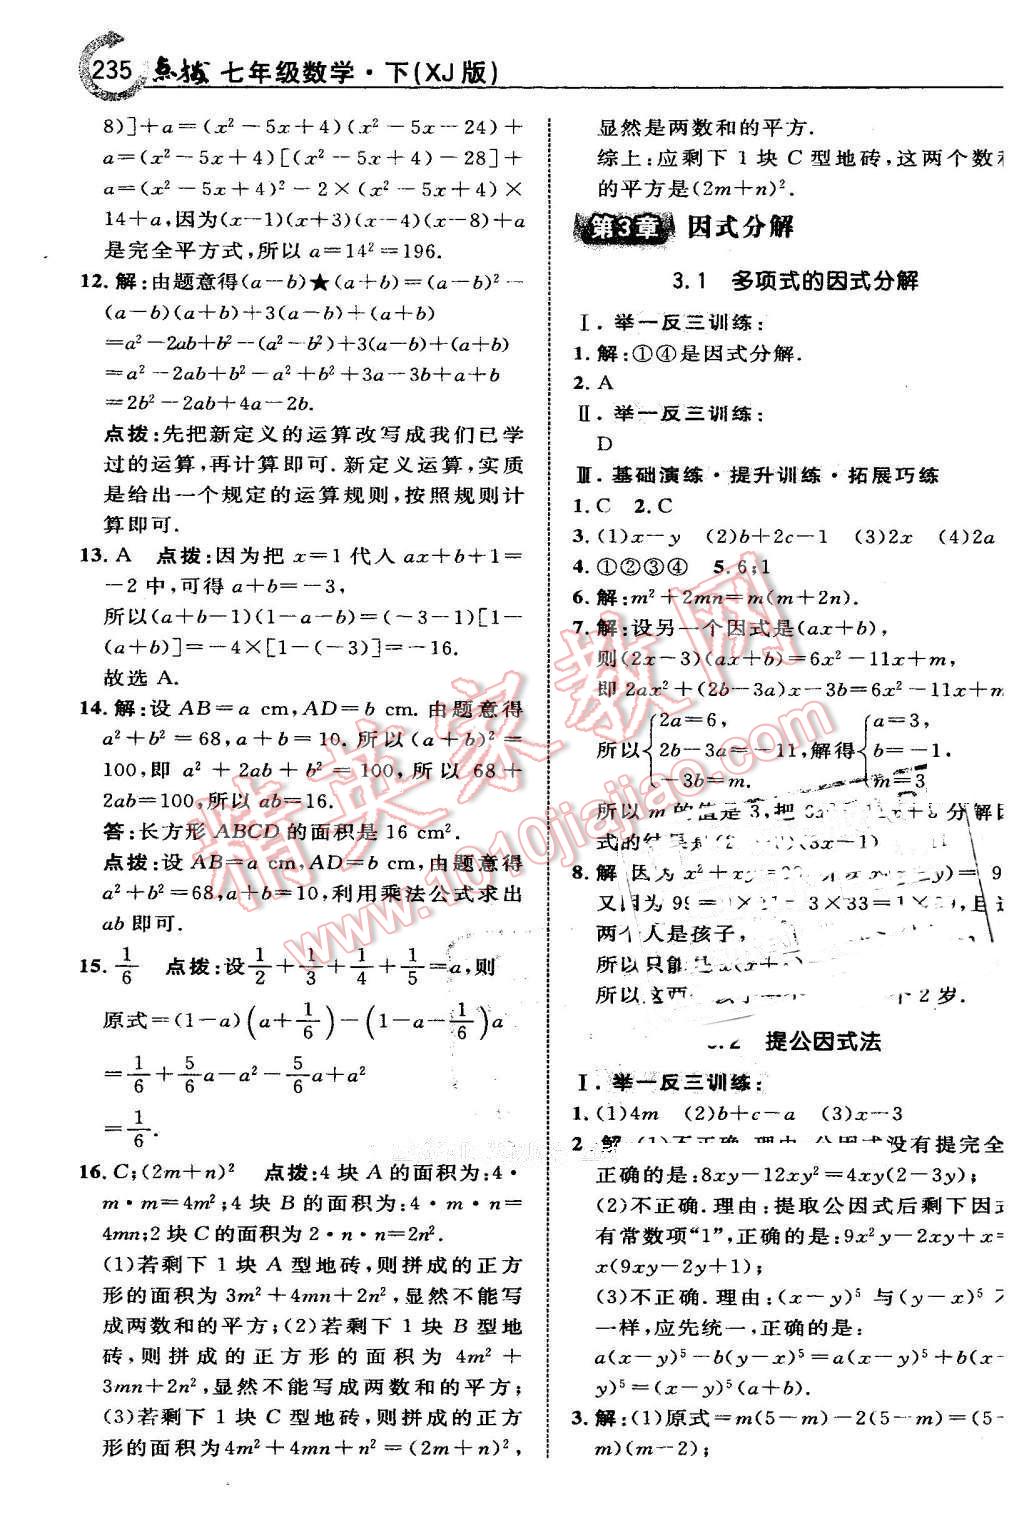 235 点拨 七年级数学·下(XJ版)
8)]+a=(x²-5x+4)(x²-5x-24)+
a=(x²-5x+4)[(x²-5x+4)-28]+
a=(x²-5x+4)²-2×(x²-5x+4)×
14+a,因为(x-1)(x+3)(x-4)(x-8)+a
是完全平方式,所以 a=14²=196.
12.解:由题意得(a-b)★(a+b)=(a-b)²-
(a-b)(a+b)+3(a-b)+(a+b)
=a²-2ab+b²-(a²-b²)+3a-3b+(a+b)
=a²-2ab+b²-a²+b²+3a-3b+a+b
=2b²-2ab+4a-2b.
点拨:先把新定义的运算改写成我们已学
过的运算,再计算即可.新定义运算,实质
是给出一个规定的运算规则,按照规则计
算即可.
13.A 点拨:因为把 x=1 代入 ax+b+1=
-2 中,可得 a+b=-3,
所以(a+b-1)(1-a-b)=(-3-1)[1-
(a+b)]=-4×[1-(-3)]=-16.
故选 A.
14.解:设 AB=a cm,AD=b cm.由题意得
a²+b²=68,a+b=10.所以(a+b)²=
100,即 a²+2ab+b²=100,所以 68+
2ab=100,所以 ab=16.
答:长方形 ABCD 的面积是 16 cm².
点拨:设 AB=a cm,AD=b cm,由题意得
a²+b²=68,a+b=10,利用乘法公式求出
ab 即可.
15.1/6 点拨:设1/2+1/3+1/4+1/5=a,则
原式=(1-a)(a+1/6)-(1-a-1/6)a
=1/6+5/6a-a²-5/6a+a²
=1/6.
16.C;(2m+n)² 点拨:4 块 A 的面积为:4·
m·m=4m²;4 块 B 的面积为:4·m·n=
4mn;2 块 C 的面积为 2·n·n=2n².
(1)若剩下 1 块 A 型地砖,则拼成的正方
形的面积为 3m²+4mn+2n²,显然不能写
成两数和的平方;(2)若剩下 1 块 B 型地
砖,则拼成的正方形的面积为 4m²+
3mn+2n²,显然不能写成两数和的平方;
(3)若剩下 1 块 C 型地砖,则拼成的正方
形的面积为 4m²+4mn+n²=(2m+n)²,
显然是两数和的平方.
综上:应剩下 1 块 C 型地砖,这两个数
的平方是(2m+n)².
第3章 因式分解
3.1 多项式的因式分解
Ⅰ.举一反三训练:
1.解:①④是因式分解.
2.A
Ⅱ.举一反三训练:
D
Ⅲ.基础演练·提升训练·拓展巧练
1.C 2.C
3.(1)x-y (2)b+2c-1 (3)2x (4)2a
4.①②③④ 5.6;1
6.解:m²+2mn=m(m+2n).
7.解:设另一个因式是(ax+b),
则(2x-3)(ax+b)=6x²-11x+m,
即 2ax²+(2b-3a)x-3b=6x²-11x+m
所以{2a=6, 2b-3a=-11, -3b=m. 解得{a=3, b=-1. m=3
所以 m 的值是 3,把 6x²-11x+3 分解因
式的结果是(2 )(3x-1)
8.解 因为 x²+xy=99
又因为 99=1×99=3×33=
两个人是孩子,
所以只能是
所以这两 2 岁.
3.2 提公因式法
Ⅰ.举一反三训练:
1.(1)4m (2)b+c-a (3)x-3
2 解 (1)不正确 理由 公因式没有提完全
正确的是:8xy-12xy²=4xy(2-3y);
(2)不正确.理由:提取公因式后剩下因
有常数项“1”,正确的是:9x²y-2xy+x=
x(9xy-2y+1);
(3)不正确.理由:(x-y)⁵ 与(y-x)⁵
一样,应先统一,正确的是:
a(x-y)⁵-b(y-x)⁵=a(x-y)⁵+b(x-
y)⁵=(x-y)⁵(a+b).
3.解:(1)原式=m(5-m)-2(5-m)=(5-
m)(m-2);
精英家教网
www.1010jiajiao.com